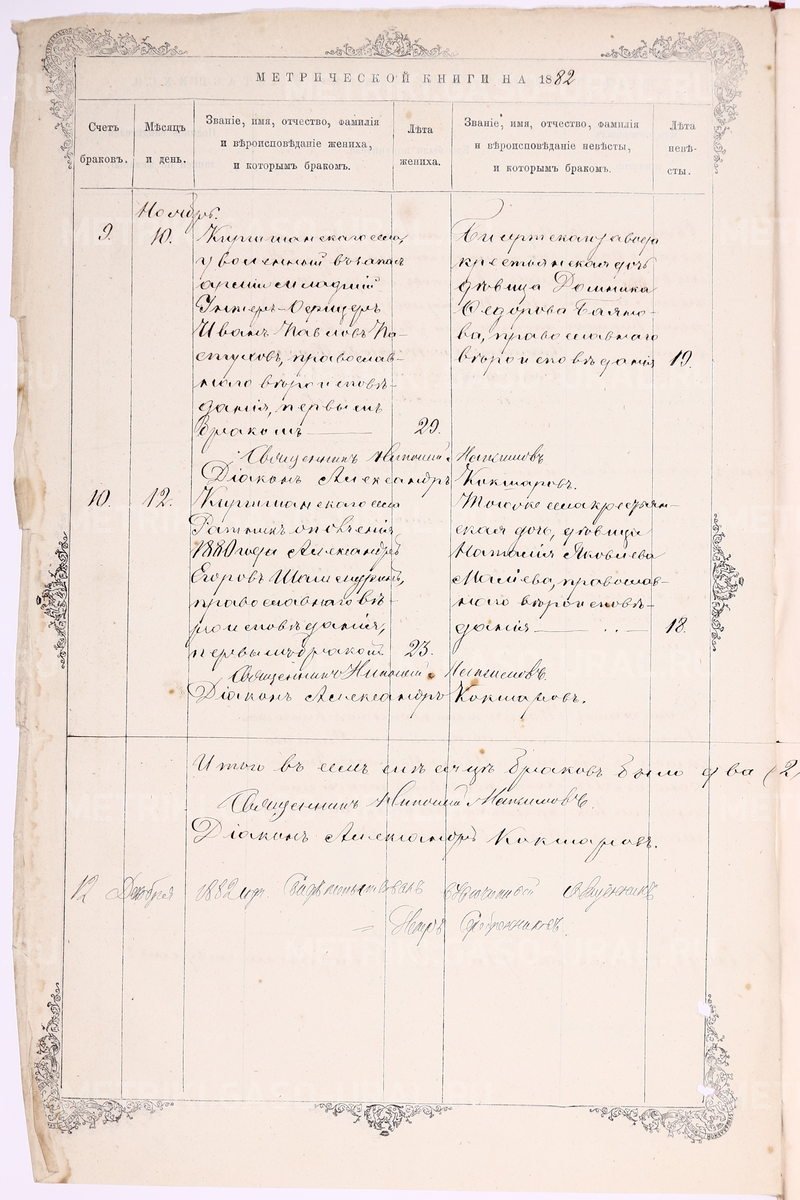 МЕТРИЧЕСКОЙ КНИГИ НА 1882
Счетъ браковъ.
Мѣсяцъ и день.
Званіе, имя, отчество, фамилія и вѣроисповѣданіе жениха, и которымъ бракомъ.
Лѣта жениха.
Званіе, имя, отчество, фамилія и вѣроисповѣданіе невѣсты, и которымъ бракомъ.
Лѣта невѣсты.
Ноябрь.
9. 10.
села,
уволенный въ запасъ
арміи младшій
Унтеръ-Офицеръ
Иванъ Павловъ Па-
стуховъ, православ-
наго вѣроисповѣ-
данія, первымъ
бракомъ 29.
Бисертскаго завода
крестьянская дочь
дѣвица Домника
Ѳедорова
ва, православнаго
вѣроисповѣданія 19.
Священникъ Максимовъ
Діаконъ Александръ Кокшаровъ.
10. 12.
села
Ратникъ ополченія
1880 года Александръ
Егоровъ
православнаго вѣ-
роисповѣданія,
первымъ бракомъ 23.
Того же села крестьян-
ская дочь, дѣвица
Наталія Яковлева
православ-
наго вѣроисповѣ-
данія 18.
Священникъ Максимовъ.
Діаконъ Александръ Кокшаровъ.
Итого въ семъ мѣсяцѣ браковъ было два (2)
Священникъ Максимовъ.
Діаконъ Александръ Кокшаровъ.
12 Декабря 1882 года Свидѣтельствовалъ Священникъ
Петръ